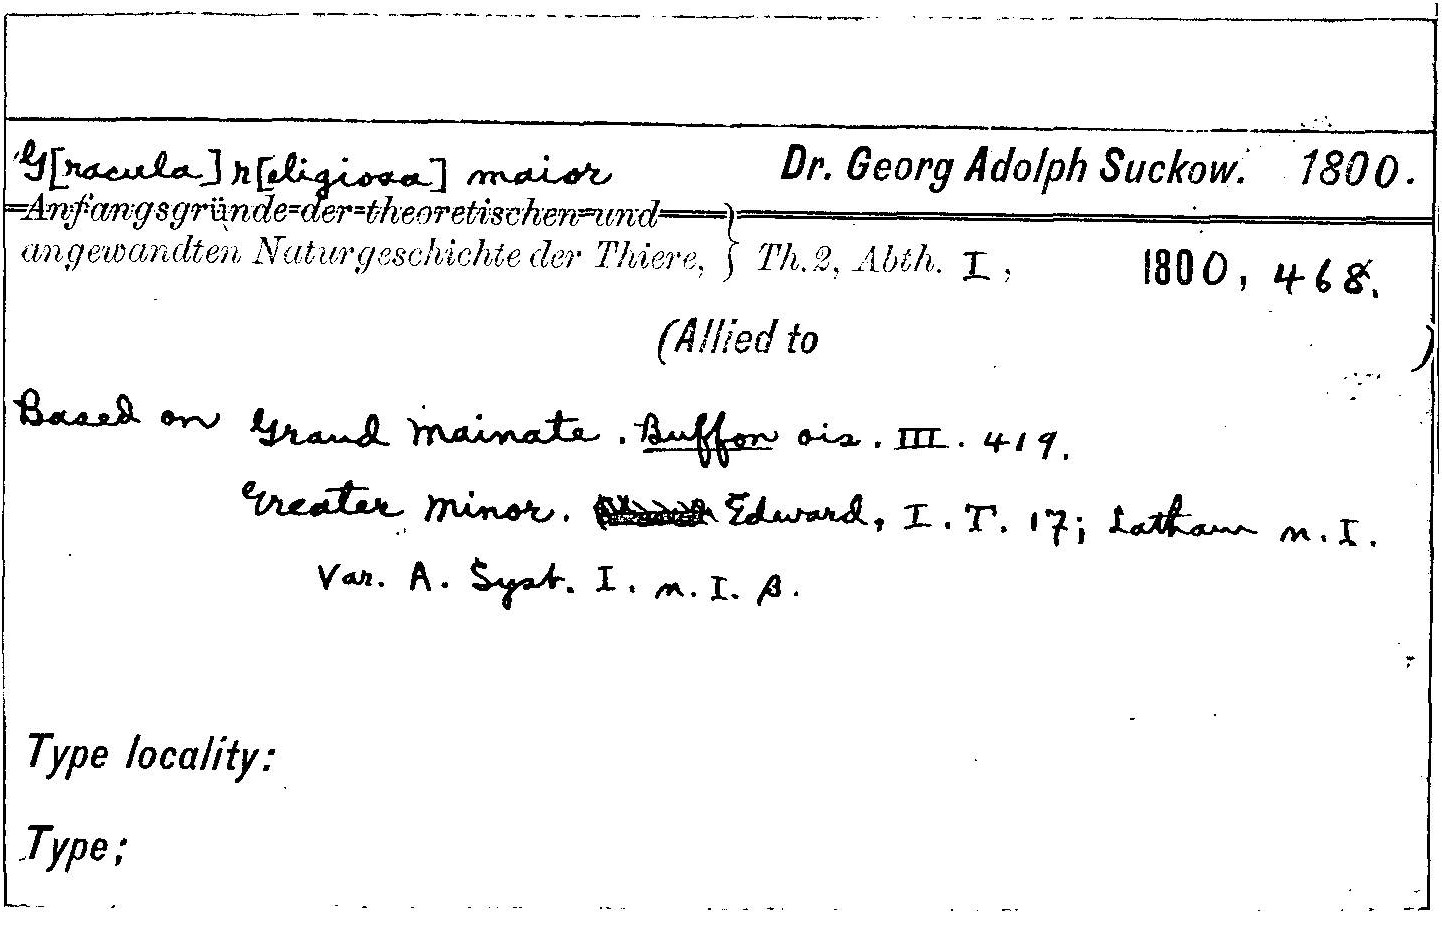 G[racula] r[eligiosa] maior Dr. Georg Adolph Suckow. 1800.
Anfangsgründe der theoretischen und
angewandten Naturgeschichte der Thiere, } Th. 2, Abth. I, 1800, 468.
(Allied to )
Based on Grand Mainate. Buffon ois. III. 419.
Greater Minor. Edward, I. T. 17; Latham n. I.
Var. A. Syst. I. n. I. β.
Type locality:
Type;